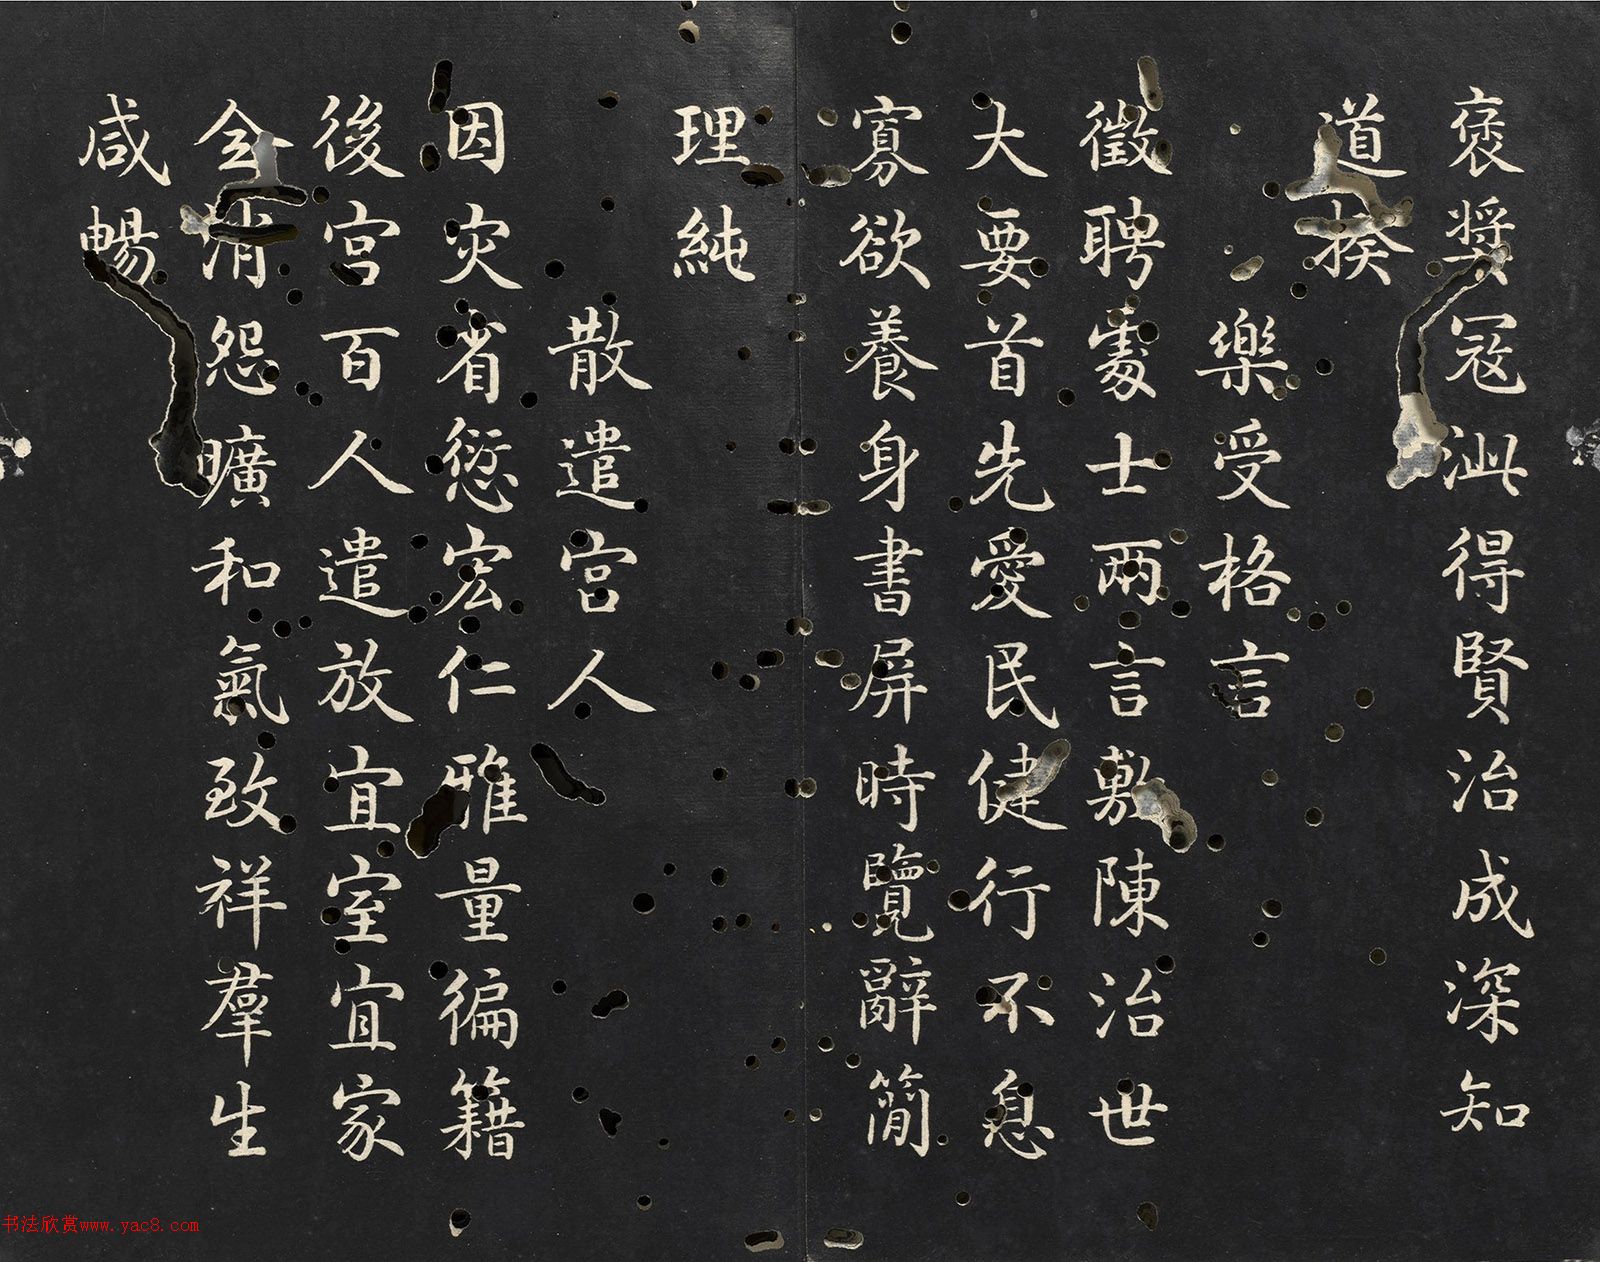 褒奬冦得賢治成深知
道揆
樂受格言
徵聘處士兩言敷陳治世
大要首先愛民健行不息
寡欲養身書屏時覽辭簡
理純
散遣宮人
因灾省愆宏仁雅量徧籍
後宮百人遣放宜室宜家
消怨曠和氣致祥羣生
咸暢
书法欣赏www.yac8.com